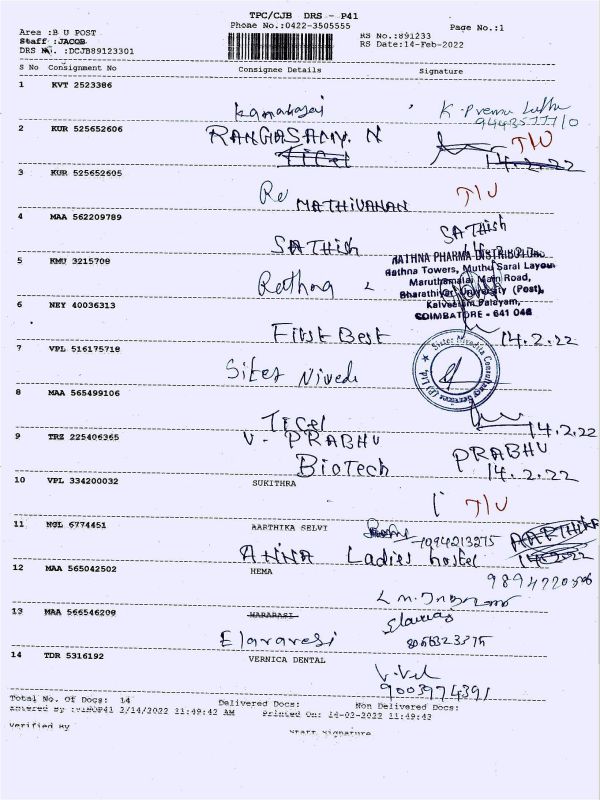 TPC/CJB DRS - P41
Area :B U POST Phone No.:0422-3505555 Page No.:1
Staff :JACOB RS No.:891233
DRS No. :DCJB89123301 RS Date:14-Feb-2022
S No Consignment No Consignee Details Signature
1 KVT 2523386
2 KUR 525652606
RANGASAMY. N T/U
14.2.22
3 KUR 525652605
MATHIVANAN T/U
4 MAA 562209789
SATHISH SATHISH
5 KMU 3215708
RATHNA PHARMA DISTRIBUTORS
Rathna Towers, Muthu Sarai Layout
Maruthamalai Main Road,
Bharathiyar University (Post),
Kalveeram Palayam,
COIMBATORE - 641 046
Rathna
6 NEY 40036313
First Best 14.2.22
7 VPL 516175718
Sister Nivedita Consultancy Services (P) Ltd
Sister Nivedi
8 MAA 565499106
TICEL 14.2.22
9 TRZ 225406365
V. PRABHU PRABHU
BIOTECH 14.2.22
10 VPL 334200032 SUKITHRA
T/U
11 NGL 6774451 AARTHIKA SELVI AARTHIKA
ANNA Ladies hostel
12 MAA 565042502 HEMA
13 MAA 566546208
Elavarasi
14 TDR 5316192 VERNICA DENTAL
9003974391
Total No. Of Docs: 14 Delivered Docs: Non Delivered Docs:
2/14/2022 11:49:42 AM Printed On: 14-02-2022 11:49:43
Verified By Staff Signature